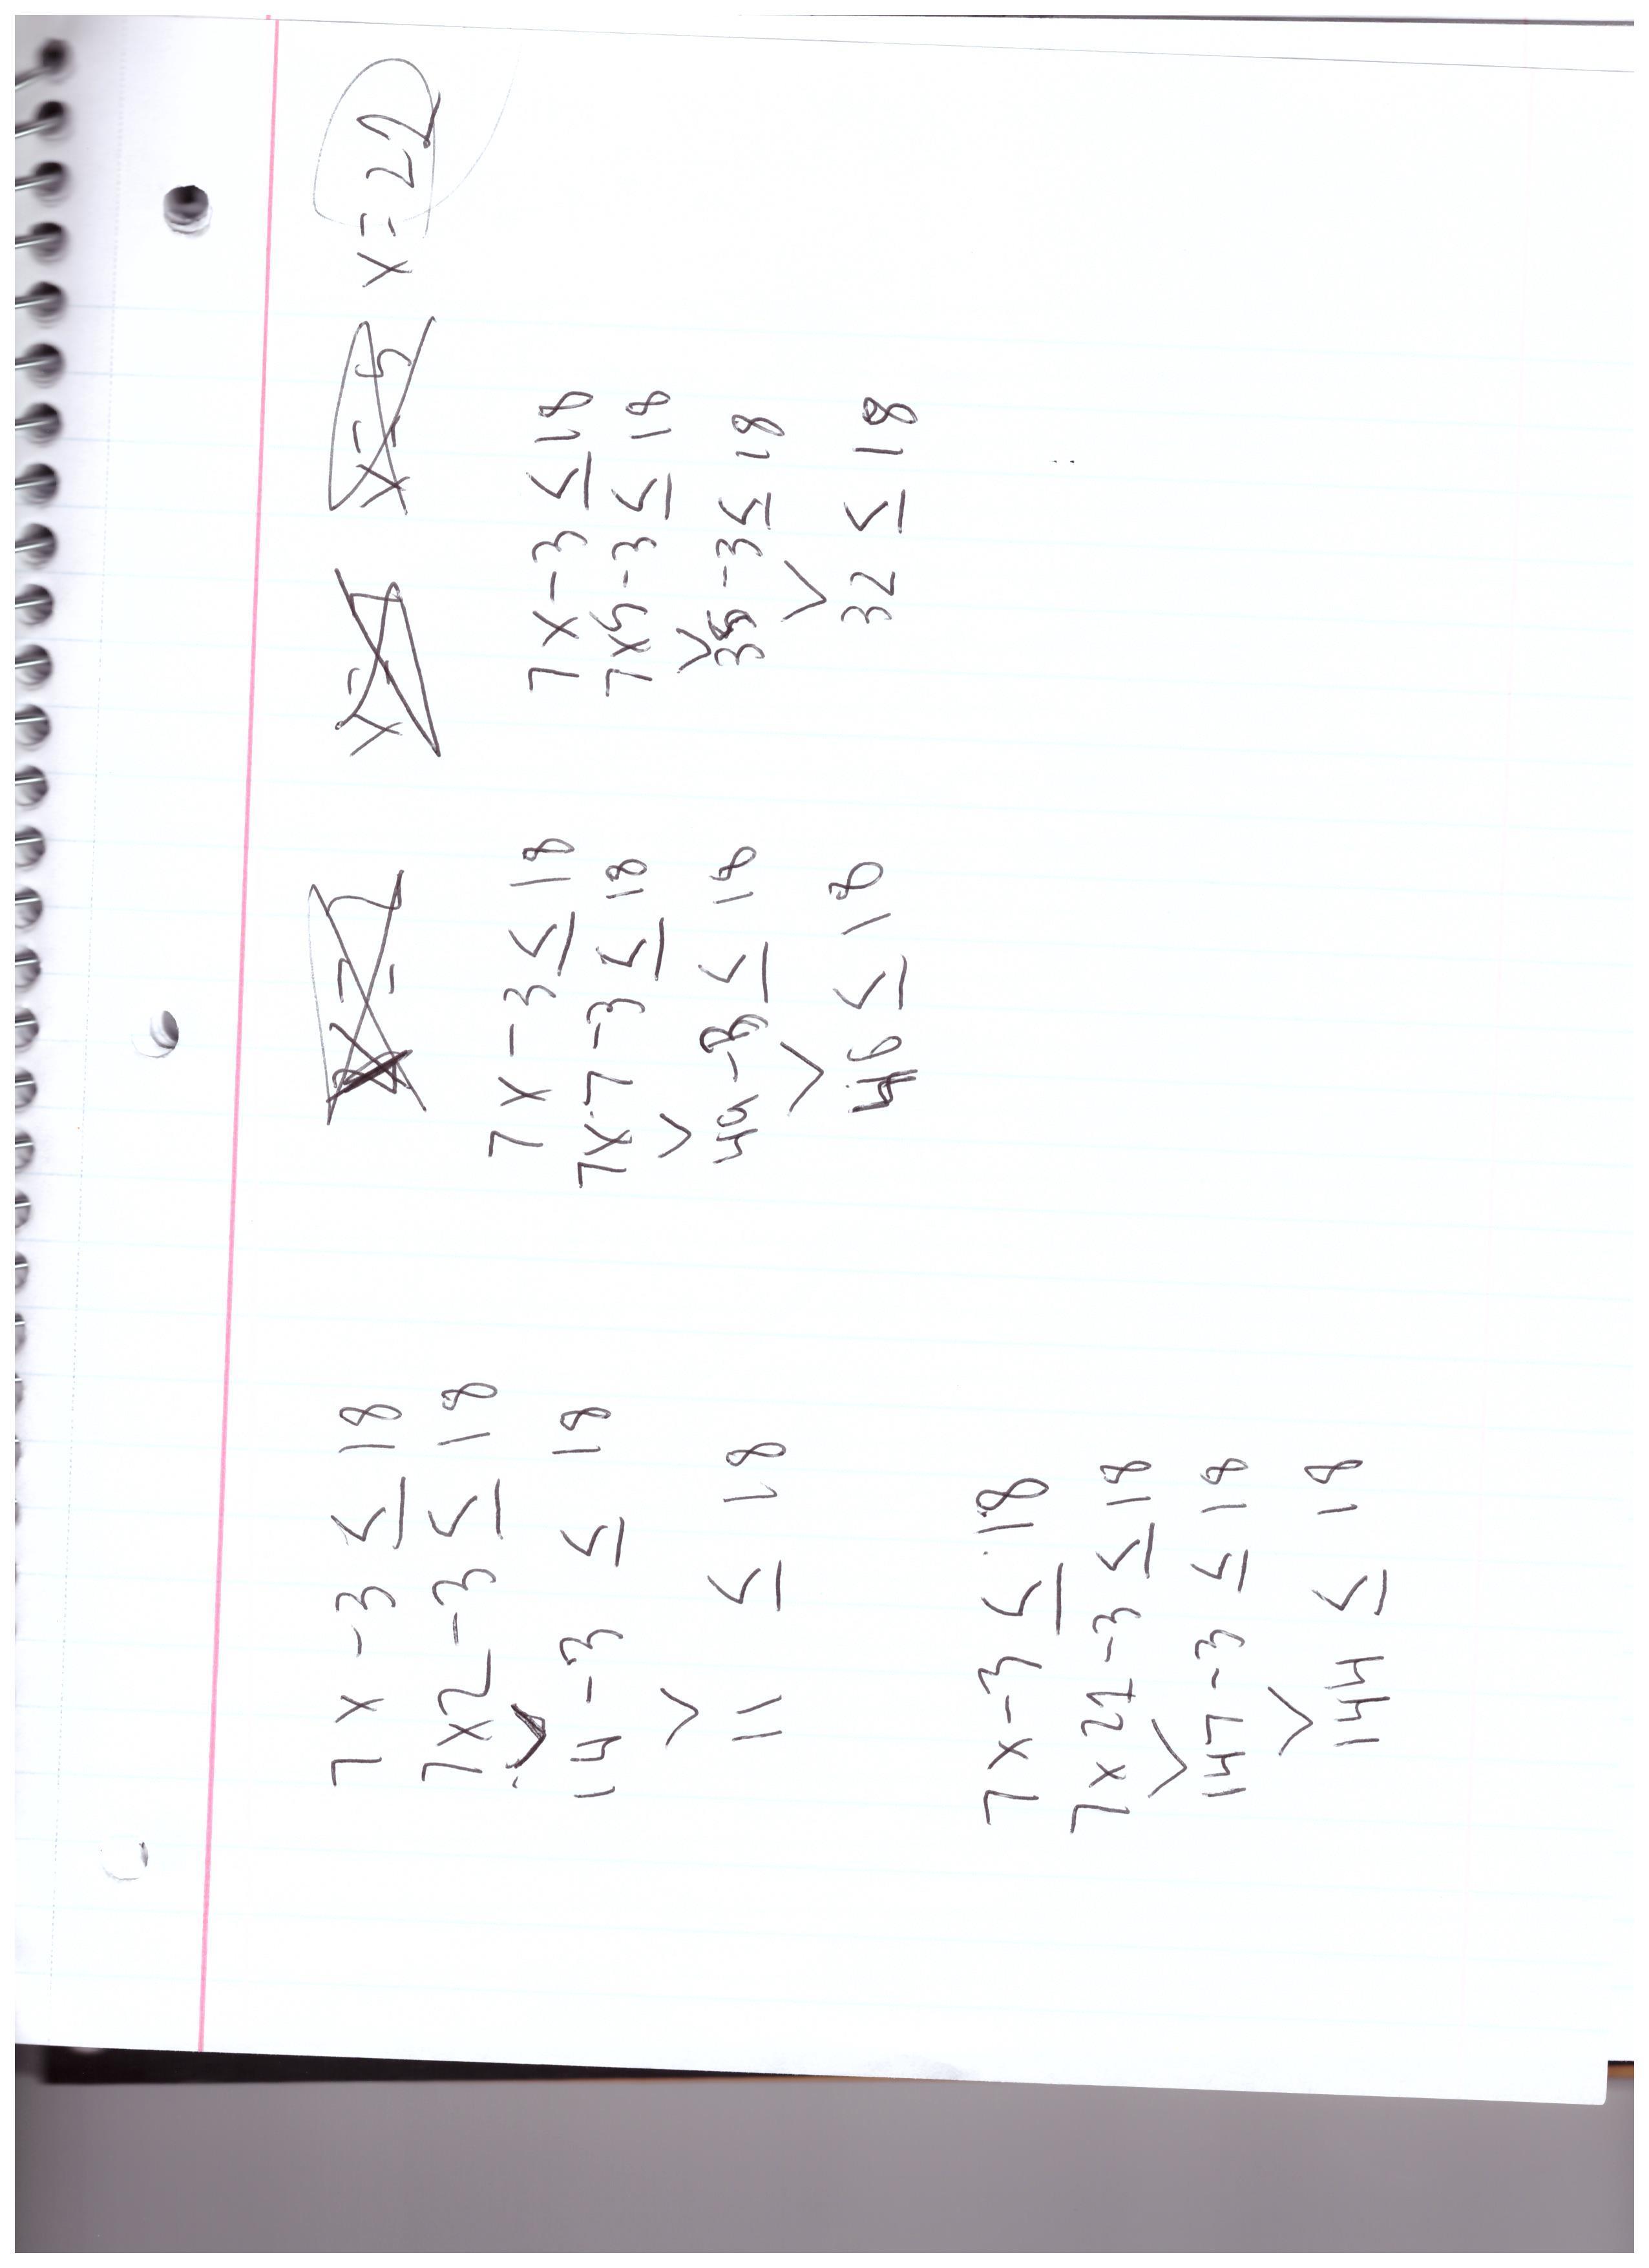 7x-3 ≤ 18
7x2-3 ≤ 18
14-3 ≤ 18
11 ≤ 18
7x-3 ≤ 18
7x21-3 ≤ 18
147-3 ≤ 18
144 ≤ 18
7x-3 ≤ 18
7x7-3 ≤ 18
49-3 ≤ 18
46 ≤ 18
x=5
x=22
7x-3 ≤ 18
7x5-3 ≤ 18
35-3 ≤ 18
32 ≤ 18